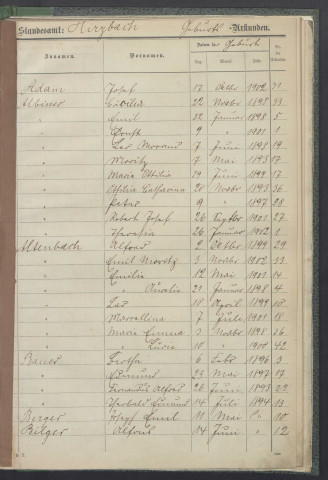 Standesamt: Hirzbach Geburts-Urkunden.
Zunamen. Vornamen. Datum der Geburt
Tag Monat Jahr
Adam Josef 17 Oktbr 1902 31
Albiser Cäcilia 22 Novbr 1898 33
" Emil 22 Januar 1898 5
" Ernst 9 " 1901 1
" Leo 7 Juni 1898 19
" Moritz 7 Mai 1893 17
" Maria Ottilia 19 Juni 1899 17
" Ottilia Catharina 28 Novbr 1893 36
" Peter 9 " 1897 28
" Robert Josef 26 Septbr 1901 27
" Theresia 26 Januar 1902 1
Altenbach Alfons 2 Oktbr 1899 29
" Emil Moritz 3 Novbr 1902 33
" Emilie 12 Mai 1901 14
" Amalie 21 Januar 1898 4
" Leo 18 April 1899
" Marcellina 7 Juli 1901 18
" Maria Emma 3 Novbr 1898 36
" Lucia 10 " 1900 42
Bauer 6 Febr 1896 3
" Edmund 23 Mai 1897 17
" Ferdinand Alfons 26 Juni 1893 22
" Theobald Edmund 14 Juli 1894 13
Berger Josef Emil 11 Mai " 10
Bilger Alfons 14 Juni " 12